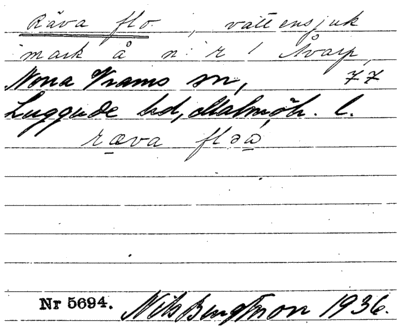 Räva flo, vattensjuk
mark å n:r 1 Åvarp,
Norra Vrams sn, 77
Luggude hd, Malmöh. l.
ræva fləa
Nr 5694. Nils Bengtsson 1936.